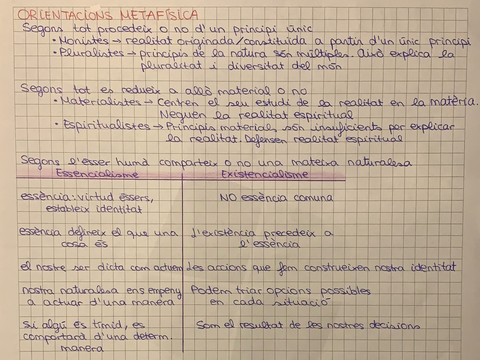 ORIENTACIONS METAFÍSICA
Segons tot procedeix o no d'un principi únic
• Monistes → realitat originada/constituida a partir d'un únic principi
• Pluralistes → principis de la natura són múltiples. Això explica la
pluralitat i diversitat del món
Segons tot es redueix a allò material o no
• Materialistes → Centren el seu estudi de la realitat en la matèria.
Neguen la realitat espiritual
• Espiritualistes → Principis materials són insuficients per explicar
la realitat. Defensen realitat espiritual
Segons l'ésser humà comparteix o no una mateixa naturalesa
Essencialisme Existencialisme
essència: virtud éssers, NO essència comuna
estableix identitat
essència defineix el que una l'existència precedeix a
cosa és l'essència
el nostre ser dicta com actuem les accions que fem construeixen nostra identitat
nostra naturalesa ens empeny Podem triar opcions possibles
a actuar d'una manera en cada situació
Si algú es tímid, es Som el resultat de les nostres decisions
comportarà d'una determ.
manera